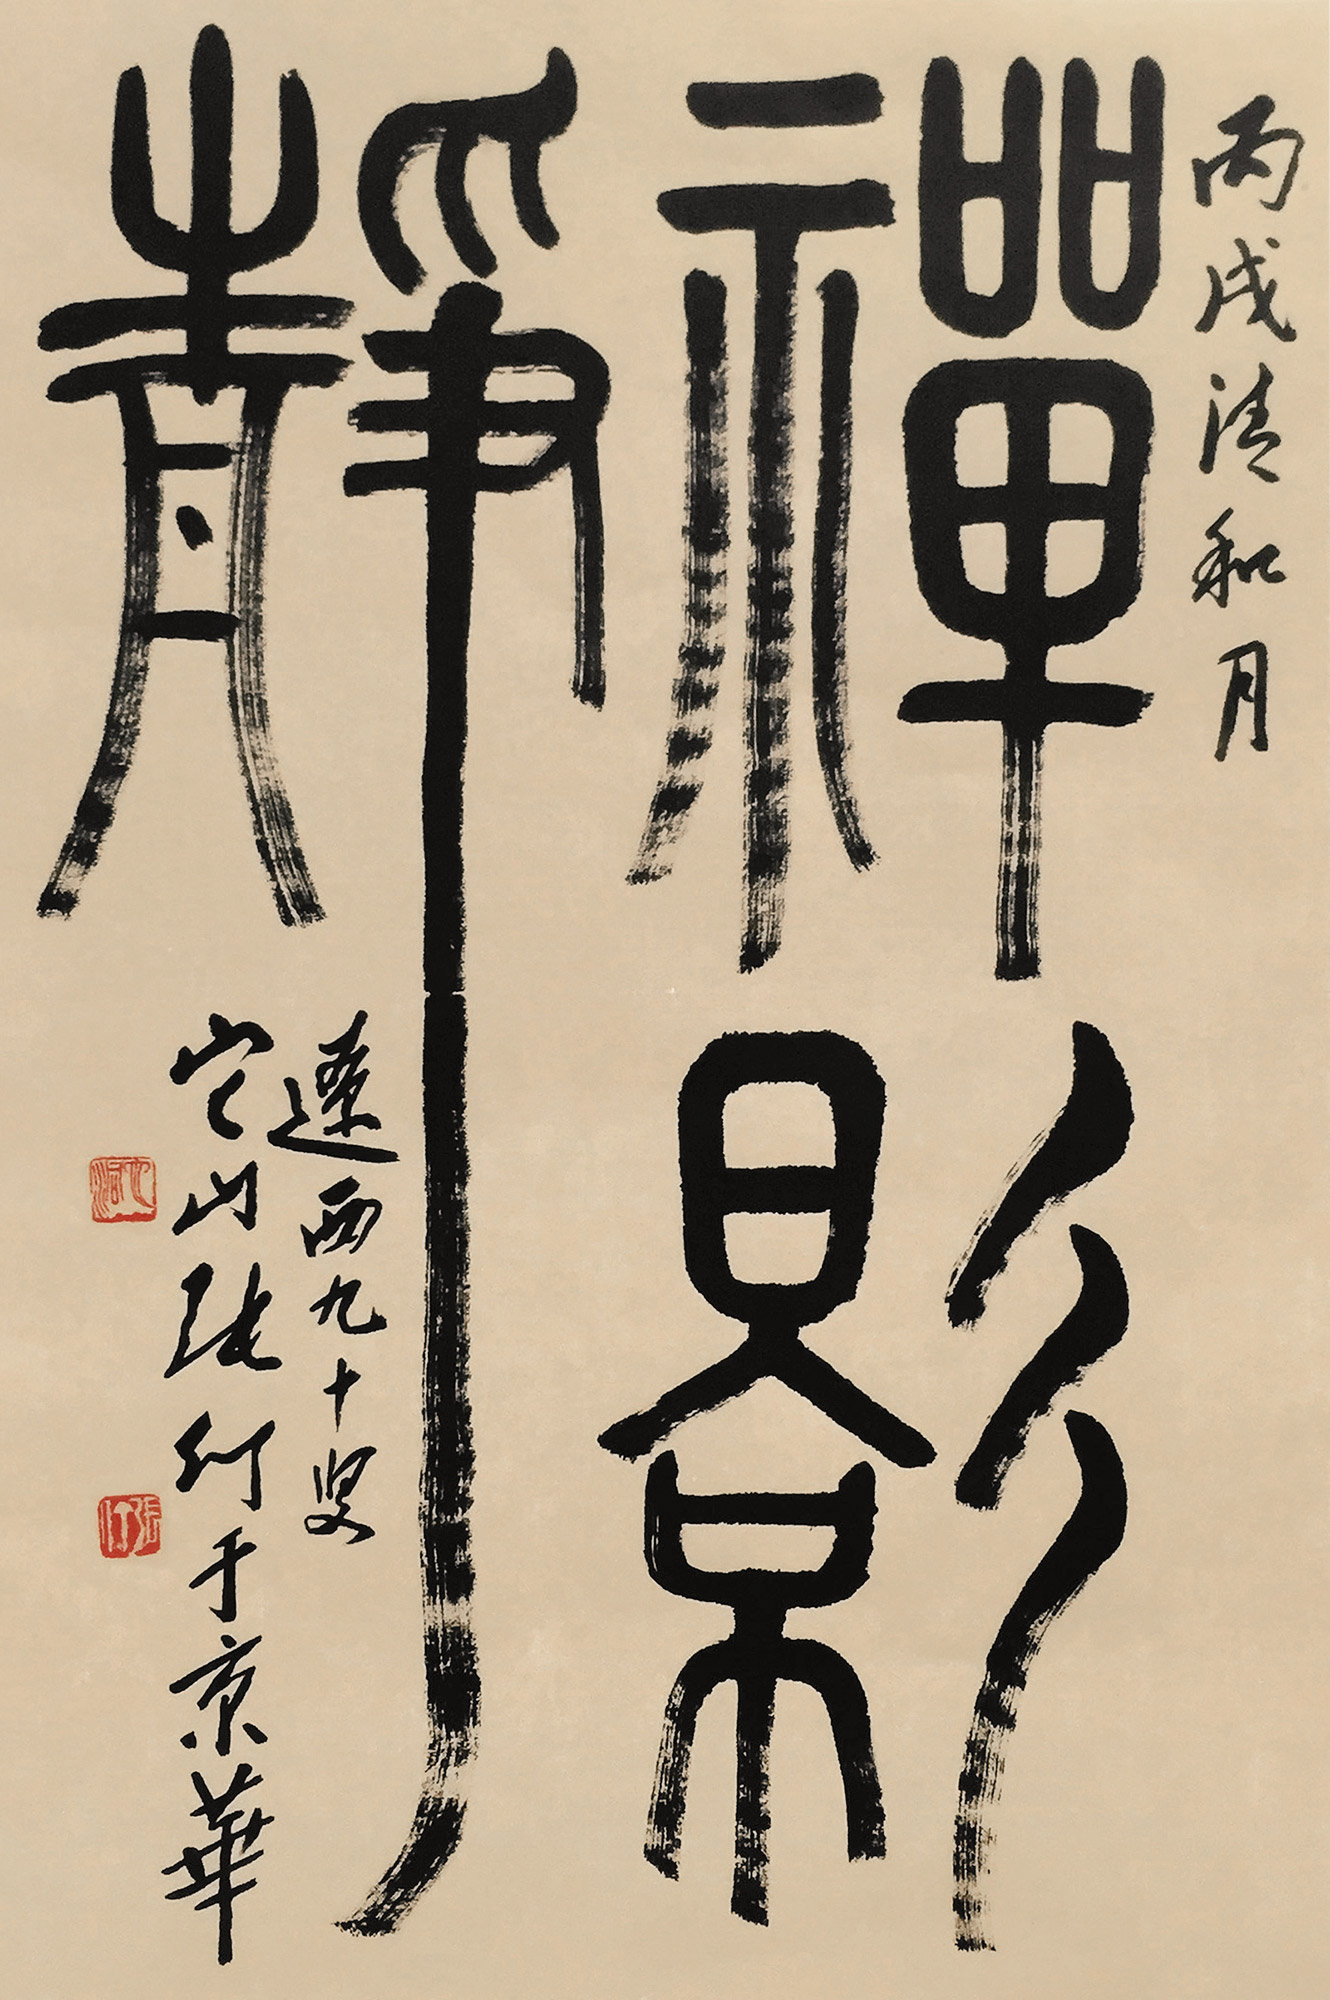 丙戌清和月
禪影
靜
遼西九十叟
它山張仃于京華
张仃